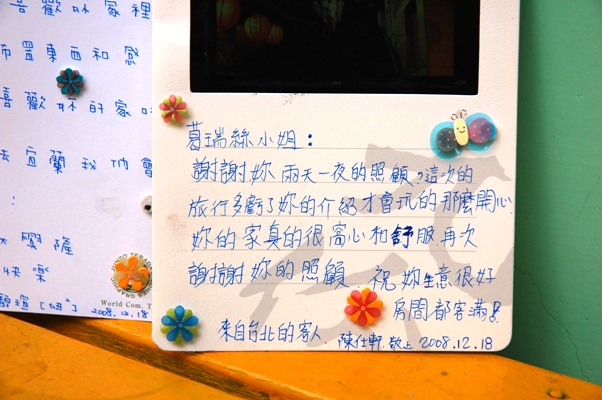 喜歡妳家裡
布置東西和感
喜歡妳的家
宜蘭我們會
快樂
World Com. T
2008.12.18
葛瑞絲小姐：
謝謝妳兩天一夜的照顧?這次的
旅行多虧了妳的介紹才會玩的那麼開心
妳的家真的很窩心和舒服.再次
謝謝妳的照顧.祝妳生意很好
房間都客滿!!
來自台北的客人. 陳仕軒.敬上 2008.12.18